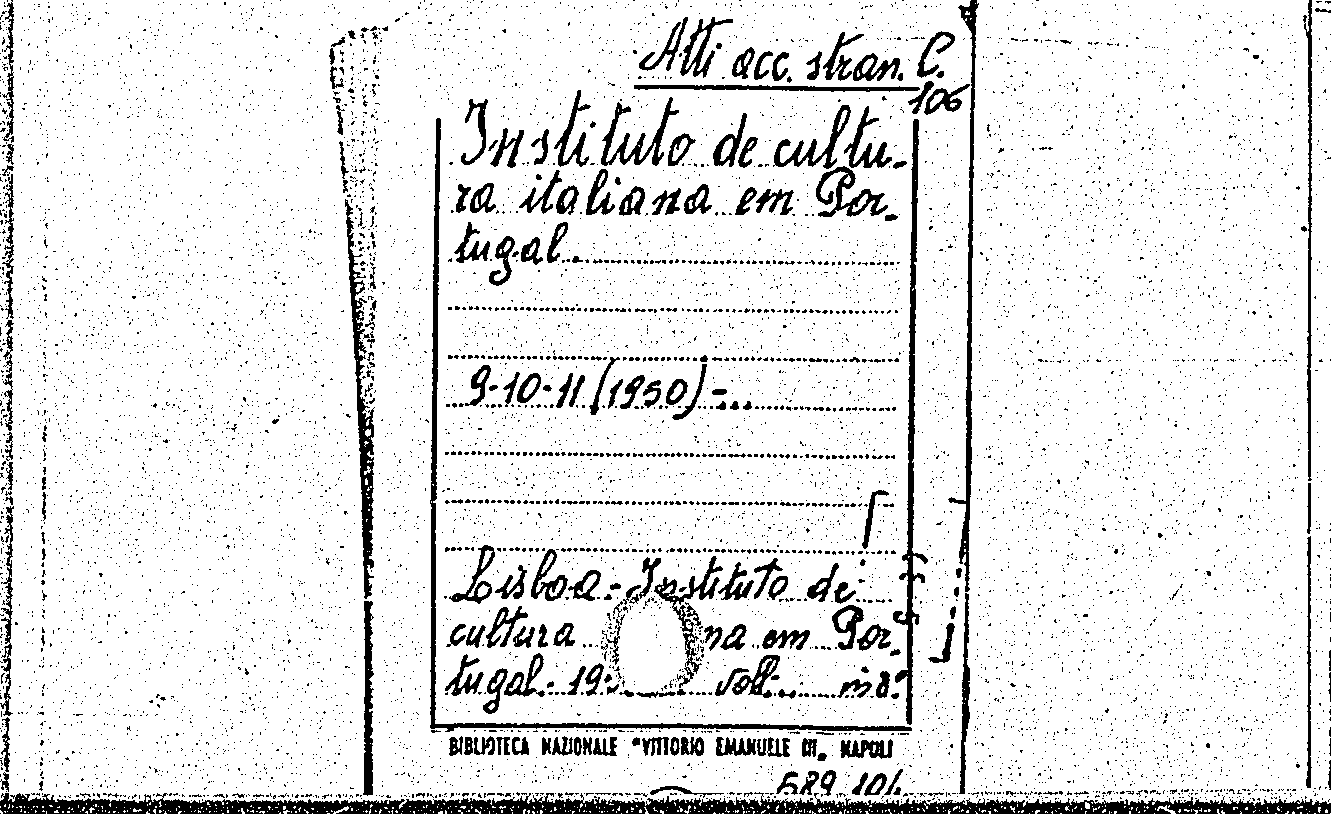 Atti acc. stran. C.
106
Instituto de cultu-
ra italiana em Por-
tugal.
9-10-11 (1950)-...
Lisboa.- Instituto de
cultura na em Por-
tugal.- 19 voll... in 8.º
BIBLIOTECA NAZIONALE "VITTORIO EMANUELE III" NAPOLI
689.104